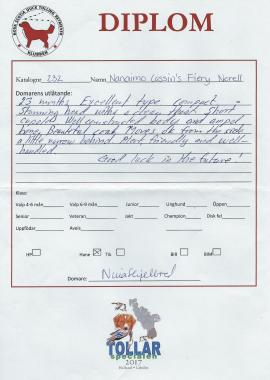 NOVA SCOTIA DUCK TOLLING RETRIEVER
KLUBBEN
DIPLOM
Katalognr. 232 Namn Nanaimo Cassin's Fiery Norell
Domarens utlåtande:
23 months Excellent type compact -
Stunning head with a clean short
Well constructed body and ampel
bone. Beautiful coat. Moves ok from the side
a little narrow behind. Most friendly and well-
handled.
Good luck in the future!
Klass:
Valp 4-6 mån Valp 6-9 mån Junior Unghund Öppen
Senior Veteran Jakt Champion Disk fel
Uppfödar Avels
HP Hane Tik BIR BIM
Domare:
TOLLAR
specialen
2017